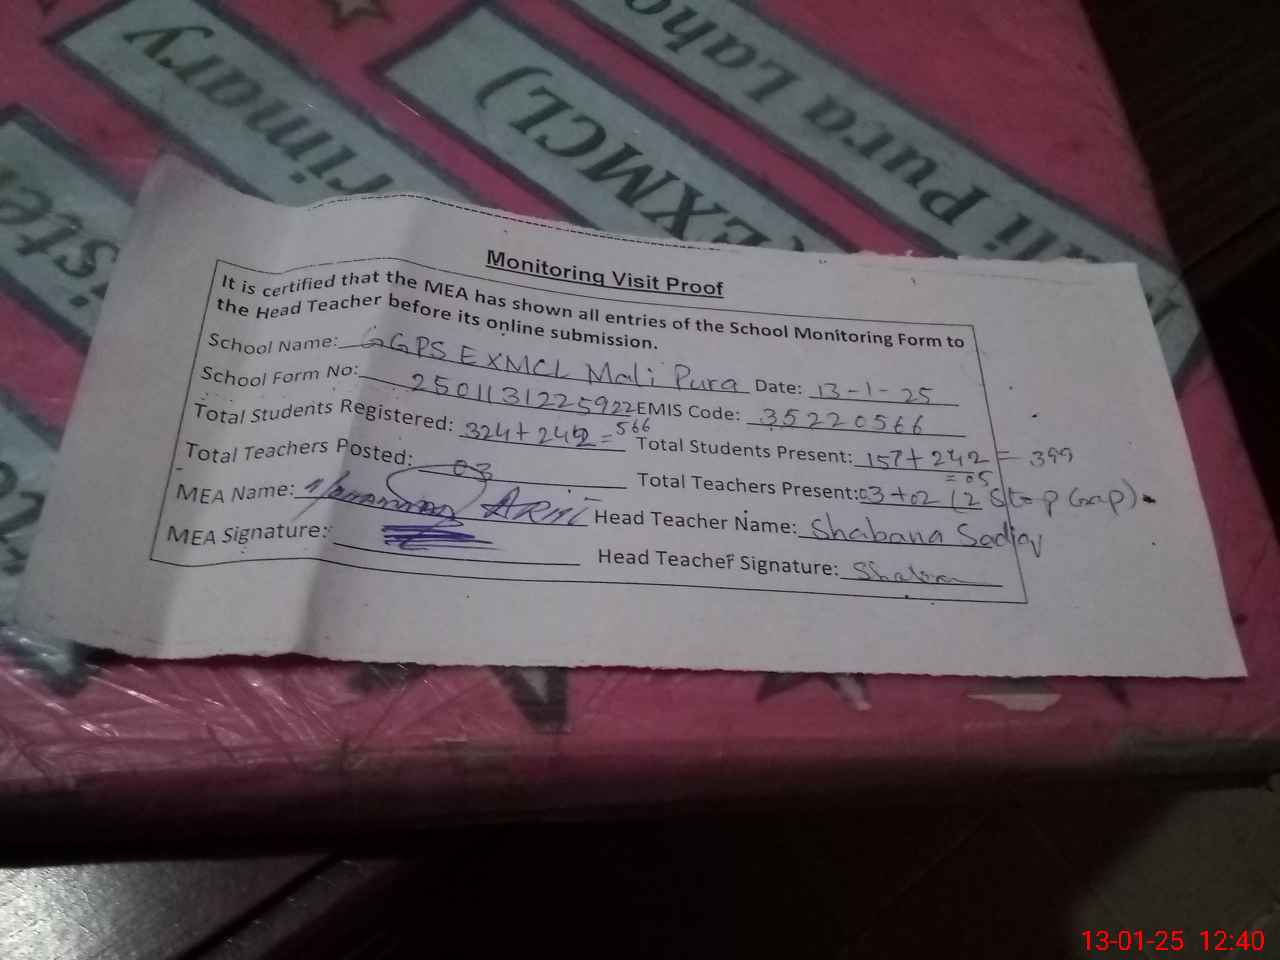 Laho
ali Pura
(EXMCL)
rimary
iste
Monitoring Visit Proof
It is certified that the MEA has shown all entries of the School Monitoring Form to
the Head Teacher before its online submission.
School Name: GGPS EXMCL Mali Pura Date: 13-1-25
School Form No: 250113122592 EMIS Code: 35220566
Total Students Registered: 324+242=566 Total Students Present: 157+242=399
Total Teachers Posted: 03 Total Teachers Present: 03+02=05 (2 Stop Gap)
MEA Name: Head Teacher Name: Shabana
MEA Signature: Head Teacher Signature:
13-01-25 12:40